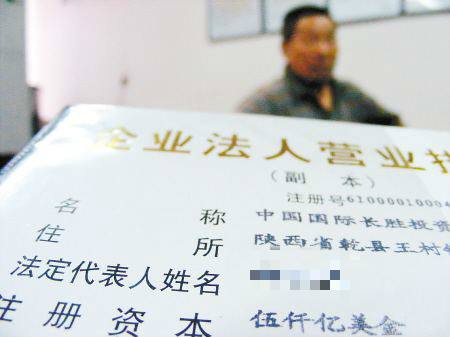 企业法人营业执
（副 本）
注册号6100001000
名 称 中国国际长胜投资
住 所 陕西省乾县王村
法定代表人姓名
注册资本 伍仟亿美金